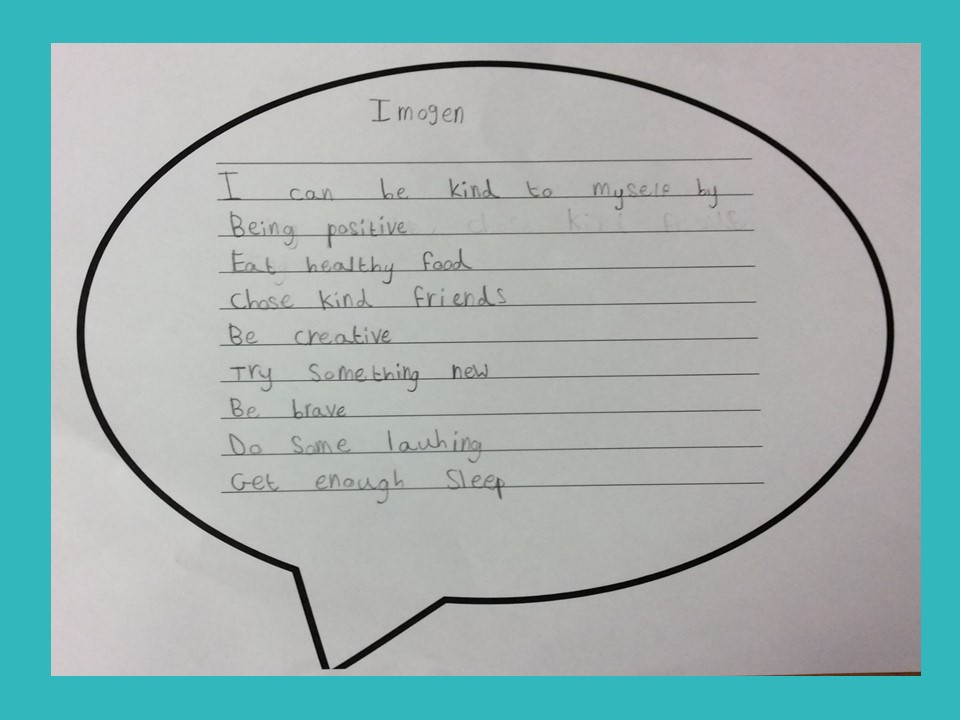 Imogen
I can be kind to myself by
Being positive
Eat healthy food
Chose kind friends
Be creative
Try Something new
Be brave
Do Some lauhing
Get enough Sleep